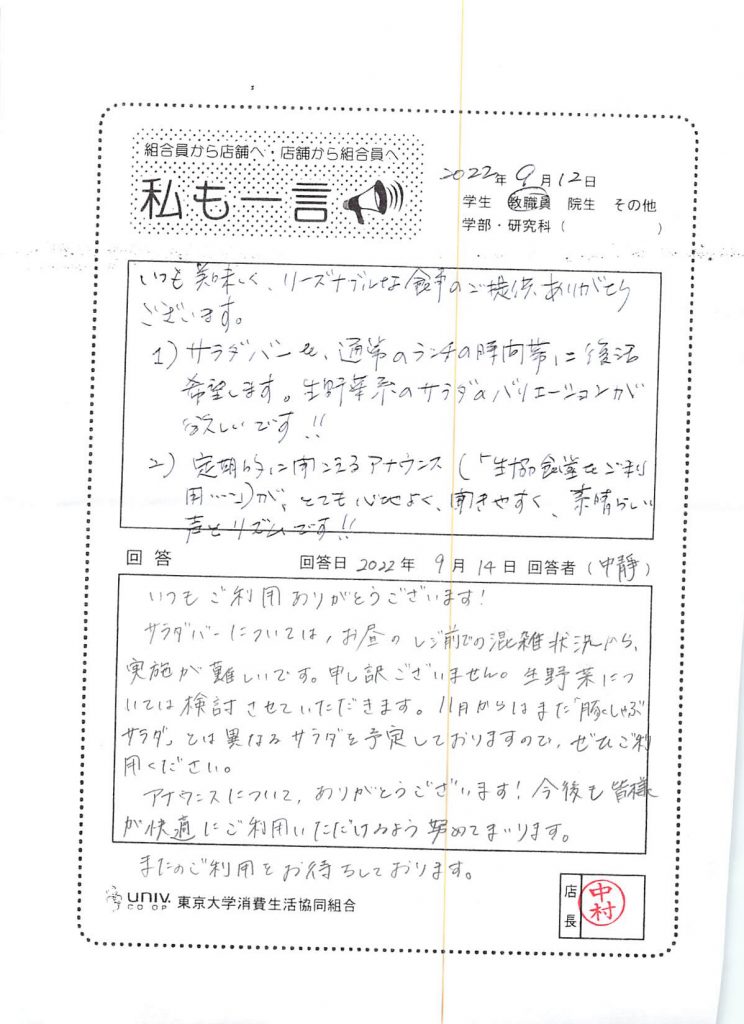 組合員から店舗へ・店舗から組合員へ
私も一言
2022年 9月12日
学生 教職員 院生 その他
学部・研究科( )
いつも美味しく、リーズナブルな食事のご提供、ありがとう
ございます。
1) サラダバーを、通常のランチの時間帯に復活
希望します。生野菜系のサラダのバリエーションが
欲しいです!!
2) 定期的に聞こえるアナウンス(「生協食堂をご利
用…」)が、とても心地よく、聞きやすく、素晴らしい
声とリズムです!!
回答
回答日 2022年 9月14日 回答者(中静)
いつもご利用ありがとうございます!
サラダバーについては、お昼のレジ前での混雑状況から、
実施が難しいです。申し訳ございません。生野菜につ
いては検討させていただきます。11月からはまた「豚しゃぶ
サラダ」とは異なるサラダを予定しておりますので、ぜひご利
用ください。
アナウンスについて、ありがとうございます!今後も皆様
が快適にご利用いただけるよう努めてまいります。
またのご利用をお待ちしております。
UNIV. CO-OP 東京大学消費生活協同組合
店長
中村